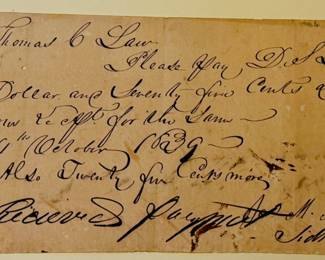 Thomas C Law
Please Pay D. S. L
Dollar and Seventy five Cents a
Recpt for the Same
October 1839
Also Twenty five Cents more
Recieved payment M.